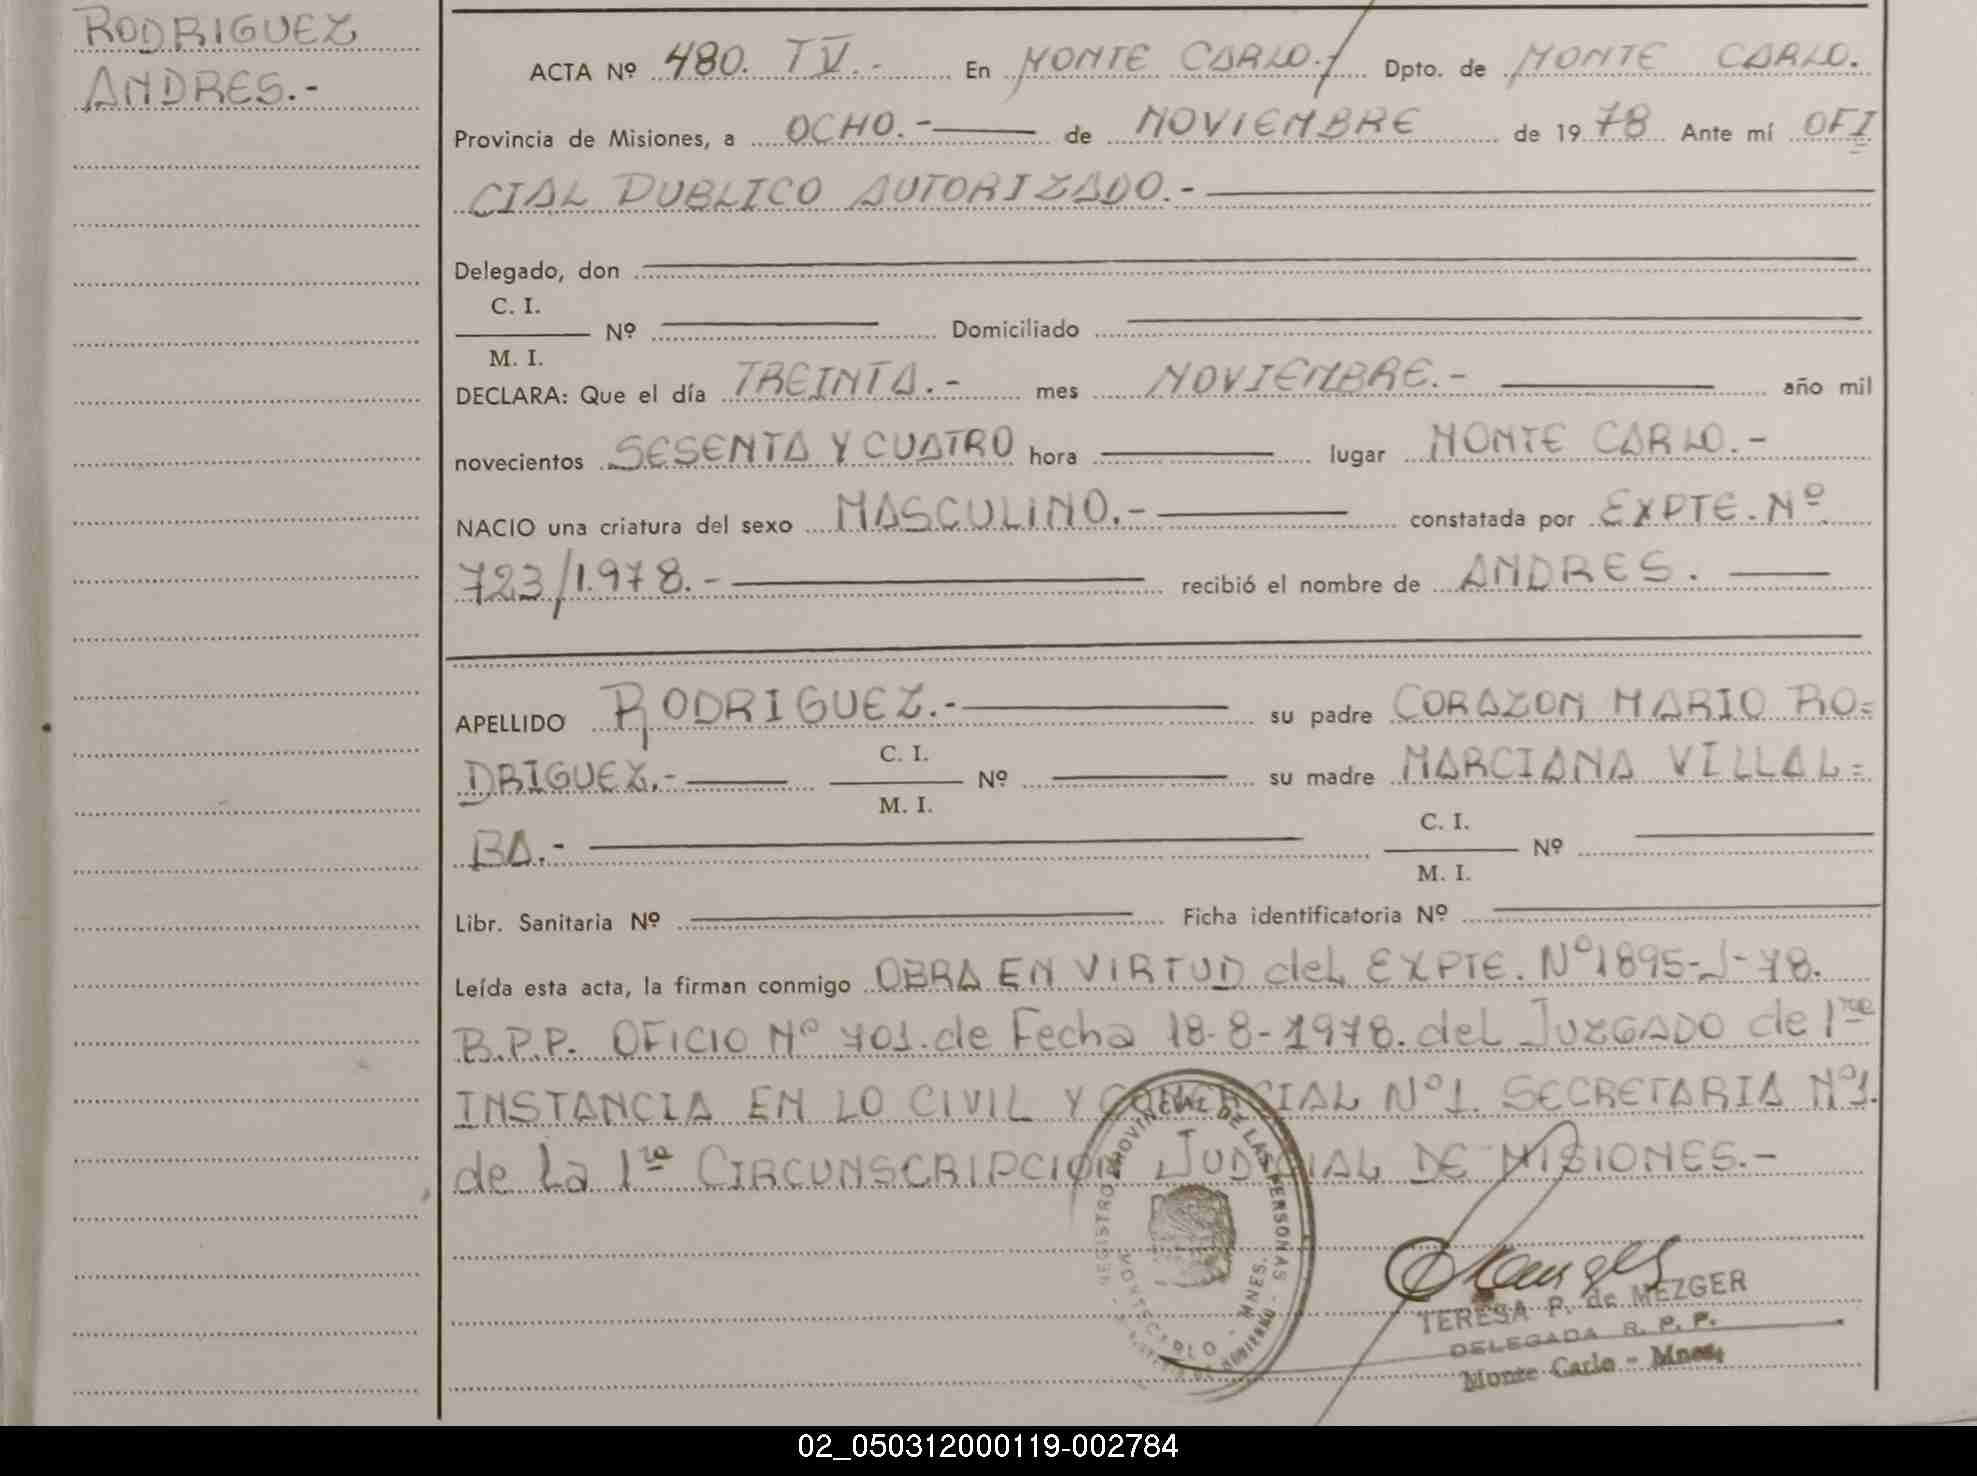 RODRIGUEZ
ANDRES.-
ACTA Nº 480. T V.- En MONTE CARLO.- Dpto. de MONTE CARLO.
Provincia de Misiones, a OCHO.- de NOVIEMBRE de 1978 Ante mí OFI
CIAL PUBLICO AUTORIZADO.-
Delegado, don
C. I.
Nº Domiciliado
M. I.
DECLARA: Que el día TREINTA.- mes NOVIEMBRE.- año mil
novecientos SESENTA Y CUATRO hora lugar MONTE CARLO.-
NACIO una criatura del sexo MASCULINO.- constatada por EXPTE. Nº
723/1.978.- recibió el nombre de ANDRES.
APELLIDO RODRIGUEZ.- su padre CORAZON MARIO RO=
DRIGUEZ.- C. I. Nº su madre MARCIANA VILLAL=
M. I.
BA.- C. I. Nº
M. I.
Libr. Sanitaria Nº Ficha identificatoria Nº
Leída esta acta, la firman conmigo OBRA EN VIRTUD deL EXPTE. Nº1895-J-78.
B.P.P. OFICIO Nº 701. de Fecha 18-8-1978. deL JUZGADO de 1ra
INSTANCIA EN LO CIVIL Y COMERCIAL Nº1. SECRETARIA Nº1.
de La 1ra CIRCUNSCRIPCION JUDICIAL DE MISIONES.-
REGISTRO PROVINCIAL DE LAS PERSONAS
MONTECARLO - MNES.
TERESA P. de MEZGER
DELEGADA R. P. P.
Monte Carlo - Mnes.
02_050312000119-002784